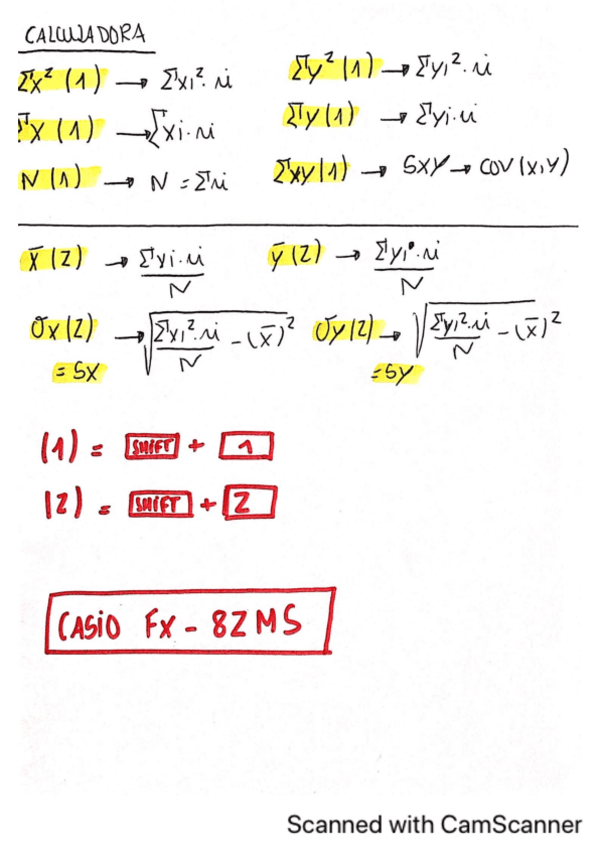 CALCULADORA
Σx² (1) → Σxi²·ni
Σx (1) → Σxi·ni
N (1) → N = Σni
Σy² (1) → Σyi²·ni
Σy (1) → Σyi·ni
Σxy (1) → Sxy → COV (x,y)
x̄ (2) → Σyi·ni / N
ȳ (2) → Σyi·ni / N
σx (2) → √(Σxi²·ni / N - (x̄)²)
= Sx
σy (2) → √(Σyi²·ni / N - (x̄)²)
= Sy
(1) = SHIFT + 1
(2) = SHIFT + 2
CASIO FX - 82 MS
Scanned with CamScanner